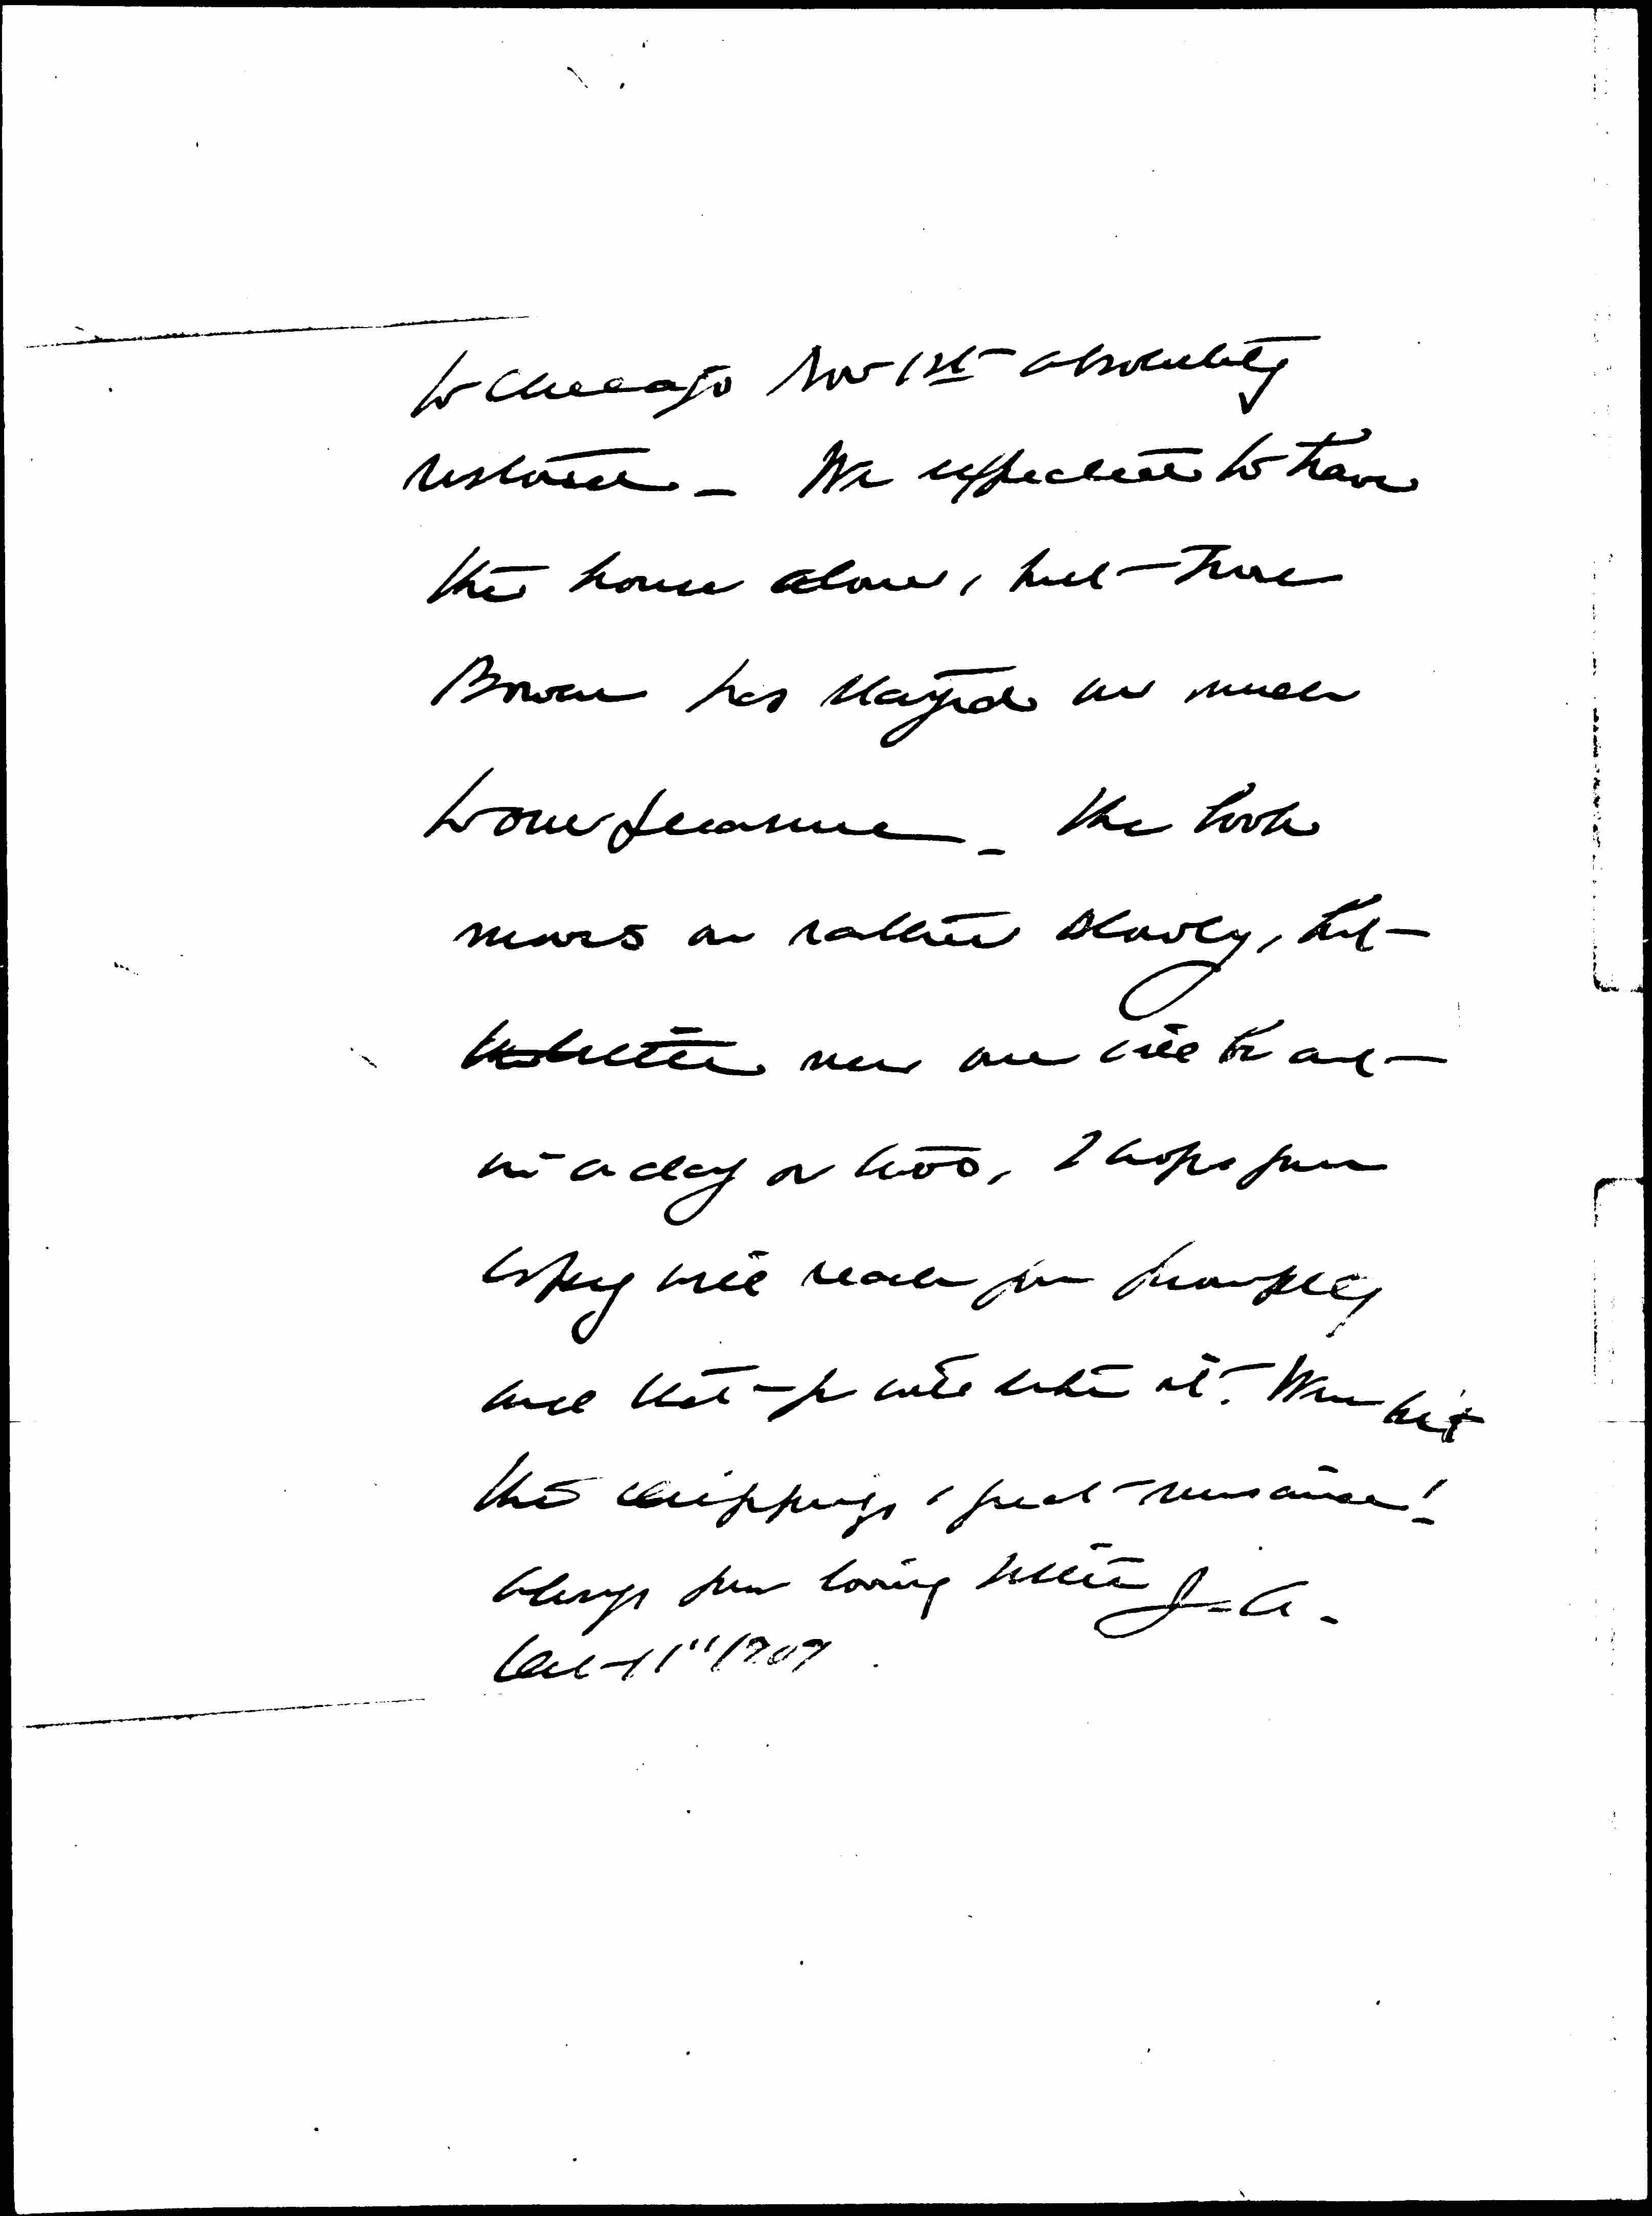 to Chicago Nov 1st absolutely
restored – We expected to have
the house alone, but
Bowen has stayed on much
to our pleasure – The book
moves on rather slowly, but
will be out
in a day or two, I hope your
copy will reach you promptly
and that you will like it. Were not
the clippings a great nuisance!
Always your loving sister J. A.
Oct 11" 1909